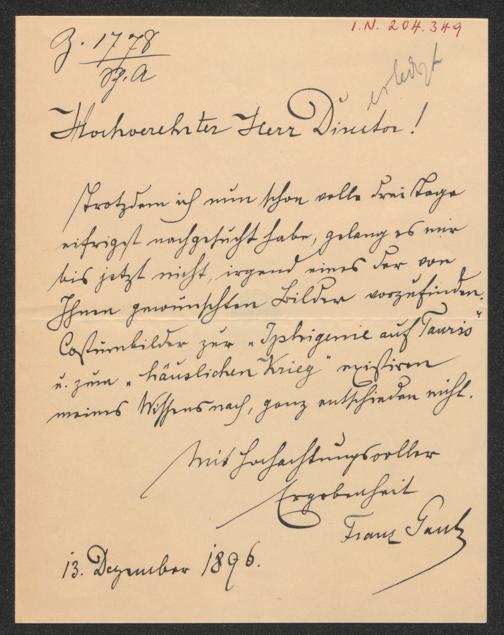 I.N. 204.349
Z. 1778
erledigt
Hochverehrter Herr Director!
Trotzdem ich nun schon volle drei Tage
eifrigst nachgesucht habe, gelang es mir
bis jetzt nicht, irgend eines der von
Ihnen gewünschten Bilder vorzufinden.
Costümbilder zur „Iphigenie auf Tauris"
u. zum „häuslichen Krieg" existiren
meines Wissens nach, ganz entschieden nicht.
Mit hochachtungsvoller
Ergebenheit
Franz
13. Dezember 1896.